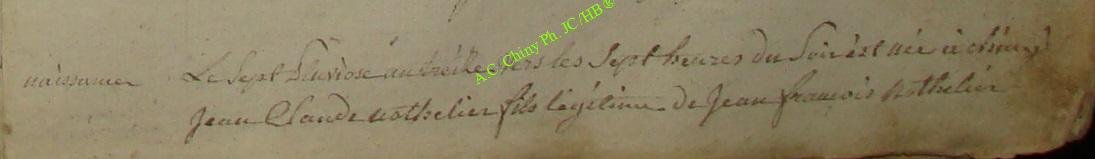 naissance Le Sept pluviose an treize vers les Sept heures du Soir est née à chiny
Jean Claude nothelier fils légitime de Jean françois nothelier
A.C. Chiny Ph. JC/HB®